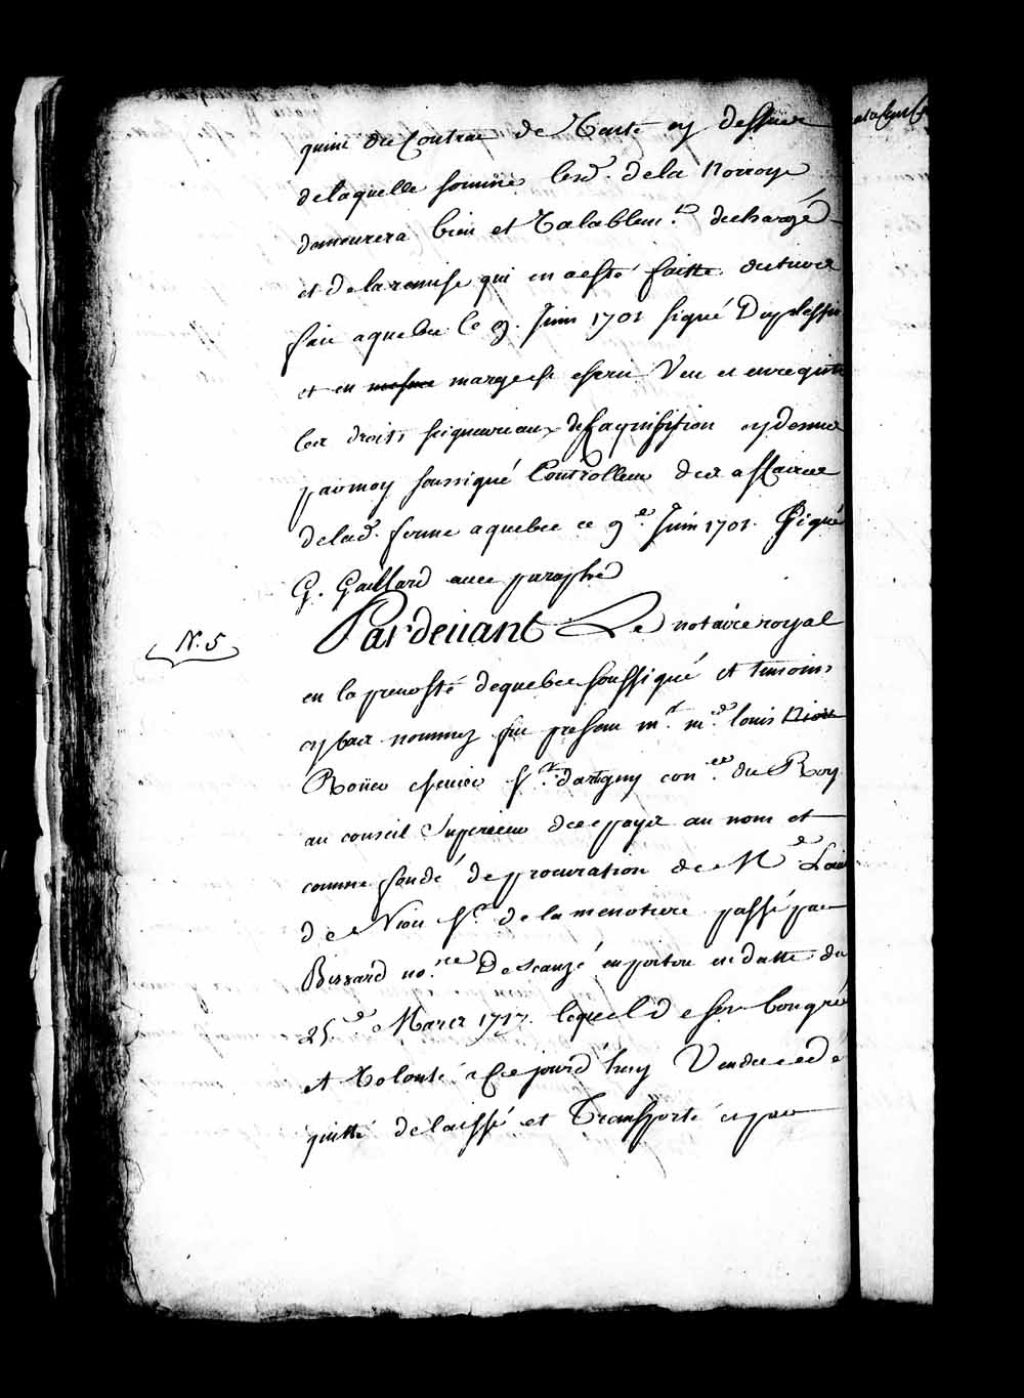 du Contrat de Vente cy dessus
de laquelle somme led. de la Noraye
demeurera bien et Valablemt. dechargé
et de la remise qui en a esté faitte
fait a quebec le 9. Juin 1701 signé Duplessis
et en mesme marge est escrit Veu et enregistré
les droits seigneuriaux de l'aquisition cy dessus
par moy soussigné Controlleur des affaires
de lad. ferme a quebec ce 9e. Juin 1701. Signé
G. Gaillard avec paraphe
N. 5
Pardevant Le notaire royal
en la prevosté de quebec soussigné et temoins
cy bas nommez fut present mr. me. louis
Roüer escuier Sr. dartigny coner. du Roy
au conseil Superieur de ce payis au nom et
comme fondé de procuration de Me Louis
de Niou Sr. de la menotiere passé par
no.re en poitou en datte du
25.e Mars 1717. lequel de son bon gré
et Volonté a ce jourd'huy Vendu cedé
quitté delaissé et Transporté et par